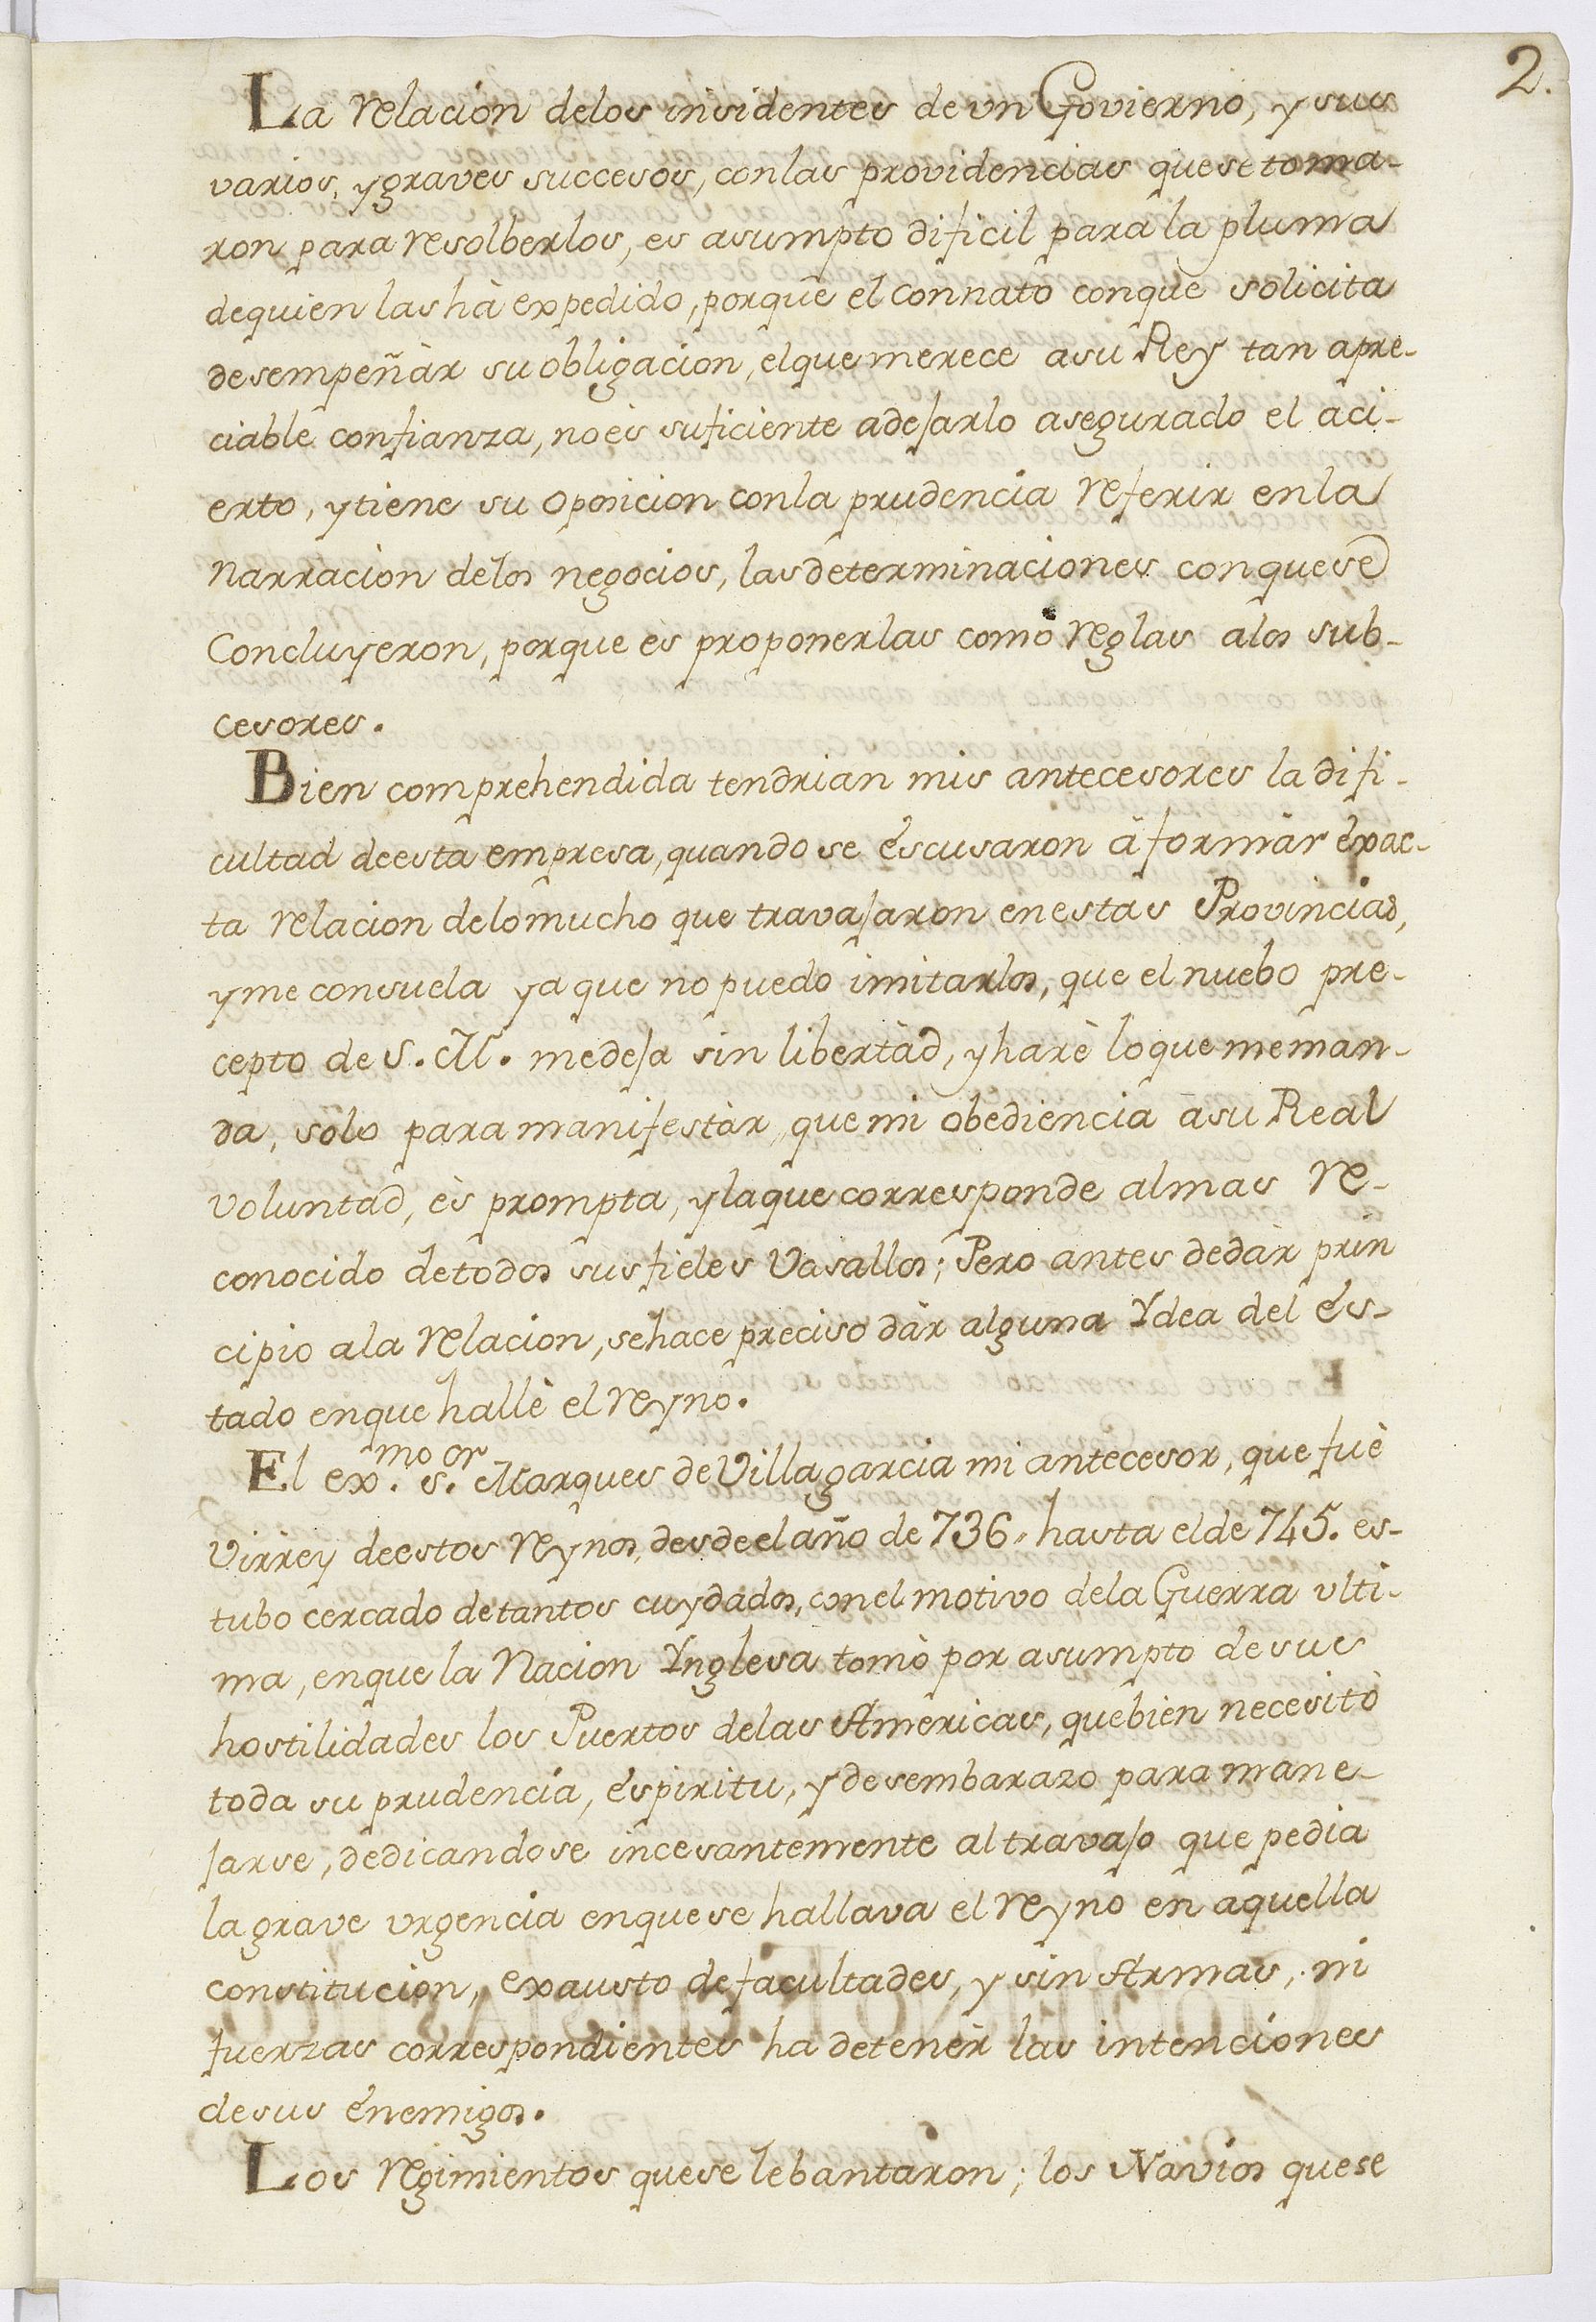 2.
La relacion delos insidentes de vn Govierno, y sus
varios, y graves succesos, conlas providencias que se toma-
ron para resolberlos, es asumpto dificil para la pluma
dequien las hà expedido, porque el connato conque solicita
desempeñàr su obligacion, elque merece asu Rey tan apre-
ciable confianza, no ès suficiente adejarlo asegurado el aci-
erto, y tiene su oposicion conla prudencia referir enla
narracion delos negocios, las determinaciones conque se
Concluyeron, porque ès proponerlas como reglas alos sub-
cesores.
Bien comprehendida tendrian mis antecesores la difi-
cultad deesta empresa, quando se èscusaron à formàr èxac-
ta relacion delo mucho que travajaron en estas Provincias,
y me consuela ya que no puedo imitarlos, que el nuebo pre-
cepto de S. M. medeja sin libertàd, y harè loque meman-
da, solo para manifestàr, que mi obediencia àsu Real
voluntad, ès prompta, y laque corresponde almas re-
conocido detodos sus fieles Vasallos; Pero antes dedàr prin
cipio ala relacion, se hace preciso dàr alguna Ydea del ès-
tado enque hallè el reyno.
El ex.mo s.or Marques de Villagarcia mi antecesor, que fuè
Virrey deestos reynos, desde el año de 736, hasta el de 745. es-
tubo cercado detantos cuydados, con el motivo dela Guerra vlti-
ma, enque la Nacion Ynglesa tomò por asumpto de sus
hostilidades los Puertos delas Americas, que bien necesitò
toda su prudencia, èspiritu, y desembarazo para mane-
jarse, dedicandose incesantemente al travajo que pedia
la grave vrgencia enque se hallava el reyno en aquella
constitucion, exausto de facultades, y sin Armas, ni
fuerzas correspondientes ha detenèr las intenciones
de sus ènemigos.
Los regimientos que se lebantaron; los Navios que se